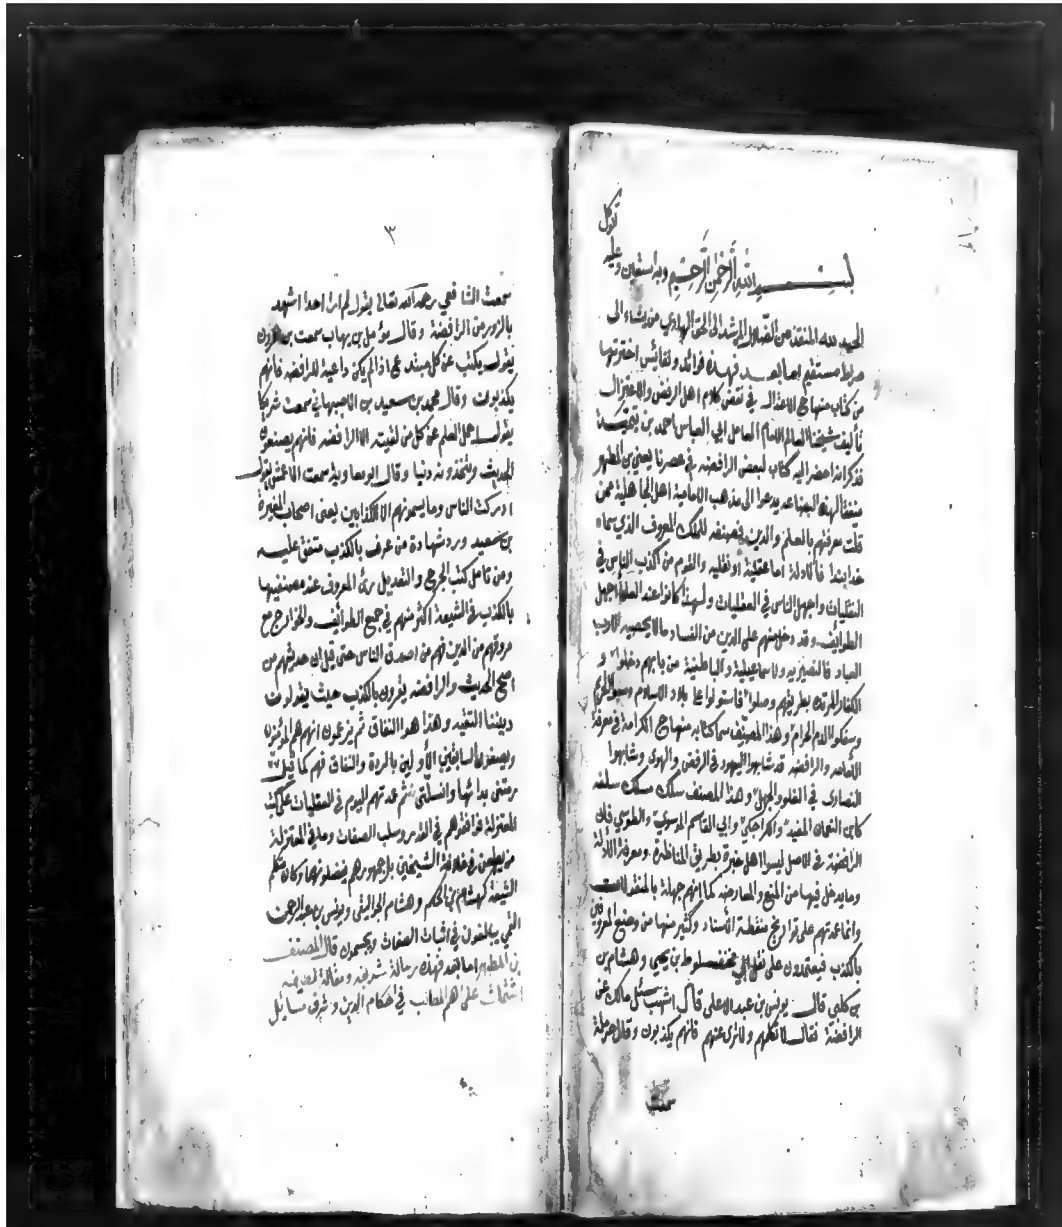 توكل
بسم الله الرحمن الرحيم وبه استعين وعليه
الحمد لله المنقذ من الضلال المرشد الى الحق الهادي من يشاء الى
صراط مستقيم اما بعد فهذه فرائد ونفائس اخترتها
من كتاب منهاج الاعتدال في نقض كلام اهل الرفض والاعتزال
تأليف شيخنا العالم الامام العامل ابي العباس احمد بن تيمية
فذكر انه احضر اليه كتاب لبعض الرافضه في عصرنا يعني بن المطهر
منفقا لهذه البضاعه يدعوا الى مذهب الامامية اهل الجاهلية ممن
قلت معرفتهم بالعلم والدين فصنفه للملك المعروف الذي سماه
خدابندة فالادلة اما عقلية او نقليه والقوم من اكذب الناس في
النقليات واجهل الناس في العقليات ولهذا كانوا عند العلماء اجهل
الطوايف وقد دخل منهم على الدين من الفساد ما لا يحصيه الا رب
العباد فالنصيريه والاسماعيلية والباطنية من بابهم دخلوا و
الكفار المرتده بطريقهم وصلوا فاستولوا على بلاد الاسلام وسبوا الحريم
وسفكوا الدم الحرام وهذا المصنف سما كتابه منهاج الكرامة في معرفة
الأمامه والرافضه قد شابهوا اليهود في الرفض والهوى وشابهوا
النصارى في الغلو والجهل وهذا المصنف سلك مسلك سلفه
كابن النعمان المفيد والكراجكي وابي القاسم الموسوي والطوسي فان
الرافضة في الاصل ليسوا اهل خبرة بطريق المناظرة ومعرفة الادلة
وما يدخل فيها من المنع والمعارضه كما انهم جهلة بالمنقولات
وانما عمدتهم على تواريخ منقطعة الأسناد وكثير منها من وضع المعروفين
بالكذب فيعتمدون على نقل ابي مخنف لوط بن يحيى وهشام بن
بن كلبي قال يونس بن عبد الاعلى قال اشهب سئل مالك عن
الرافضة فقال لا تكلمهم ولا تروى عنهم فانهم يكذبون وقال حرملة
سمعت
٣
سمعت الشافعي رحمه الله تعالى يقول لم ار احدا اشهد
بالزور من الرافضة وقال مؤمل بن يهاب سمعت بن هارون
يقول يكتب عن كل مبتدع اذا لم يكن داعية الا الرافضه فانهم
يكذبون وقال محمد بن سعيد بن الاصبهاني سمعت شريكا
يقول احمل العلم عن كل من لقيته الا الرافضه فانهم يضعون
الحديث ويتخذونه دينا وقال ابو معاوية سمعت الاعمش يقول
ادركت الناس وما يسمونهم الا الكذابين يعني اصحاب المغيرة
بن سعيد ورد شهادة من عرف بالكذب متفق عليه
ومن تامل كتب الجرح والتعديل رئ المعروف عند مصنفيها
بالكذب في الشيعة اكثر منهم في جميع الطوائف والخوارج مع
مروقهم من الدين فهم من اصدق الناس حتى قيل ان حديثهم من
اصح الحديث والرافضه يقرون بالكذب حيث يقولون
ديننا التقيه وهذا هو النفاق ثم يزعمون انهم هم المؤمنون
ويصفون السابقين الأولين بالردة والنفاق فهم كما قيل
رمتني بدائها وانسلت ثم عمدتهم اليوم في العقليات على كتب
المعتزلة فوافقوهم في القدر وسلب الصفات وما في المعتزلة
من يطعن في خلافة الشيخين بل جمهورهم يفضلونهما وكان متكلم
الشيعة كهشام بن الحكم وهشام الجواليقي ويونس بن عبد الرحمن
القمي يبالغون في اثبات الصفات ويجسمون قال المصنف
بن المطهر اما بعد فهذه رسالة شريفه ومقالة لطيفه
اشتملت على اهم المطالب في احكام الدين واشرف مسايل